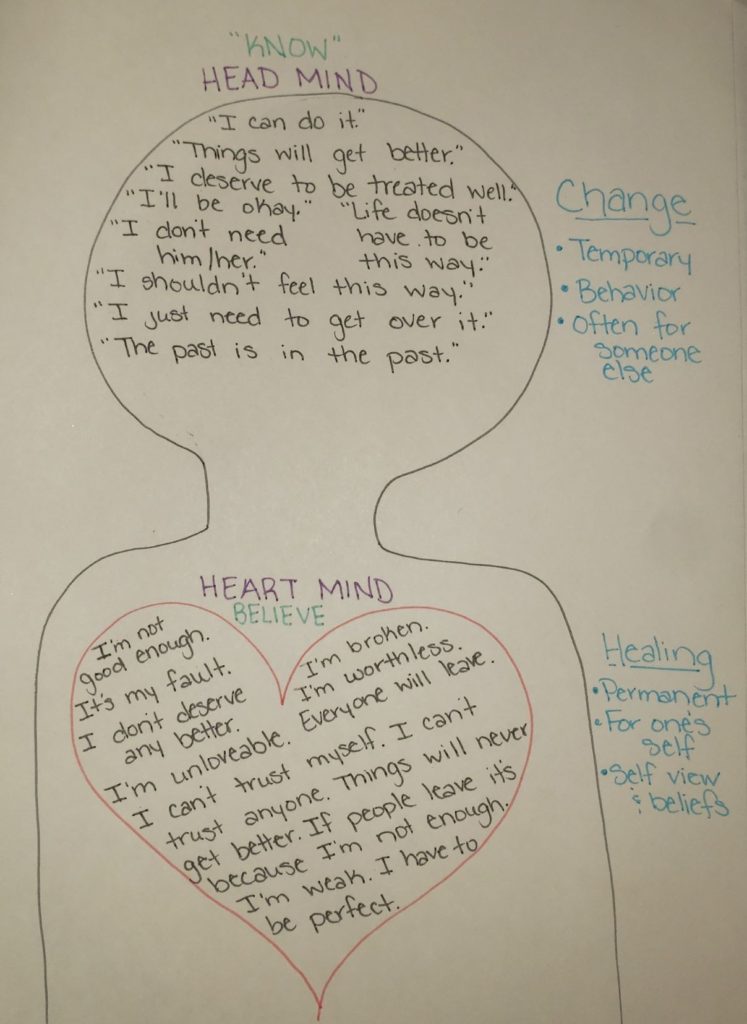 "KNOW"
HEAD MIND
"I can do it."
"Things will get better."
"I deserve to be treated well."
"I'll be okay." "Life doesn't
"I don't need have to be
him/her." this way."
"I shouldn't feel this way."
"I just need to get over it."
"The past is in the past."
Change
• Temporary
• Behavior
• Often for
someone
else
HEART MIND
BELIEVE
I'm not
good enough.
It's my fault.
I don't deserve
any better.
I'm broken.
I'm worthless.
I'm unloveable. Everyone will leave.
I can't trust myself. I can't
trust anyone. Things will never
get better. If people leave it's
because I'm not enough.
I'm weak. I have to
be perfect.
Healing
• Permanent
• For one's
self
• Self view
& beliefs